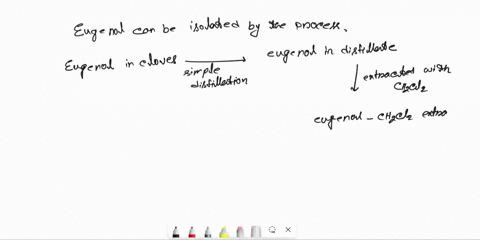 Eugenol can be isolated by the process.
Eugenol in cloves
simple
distillation
eugenol in distillate
extracted with
CH2Cl2
eugenol - CH2Cl2 extra